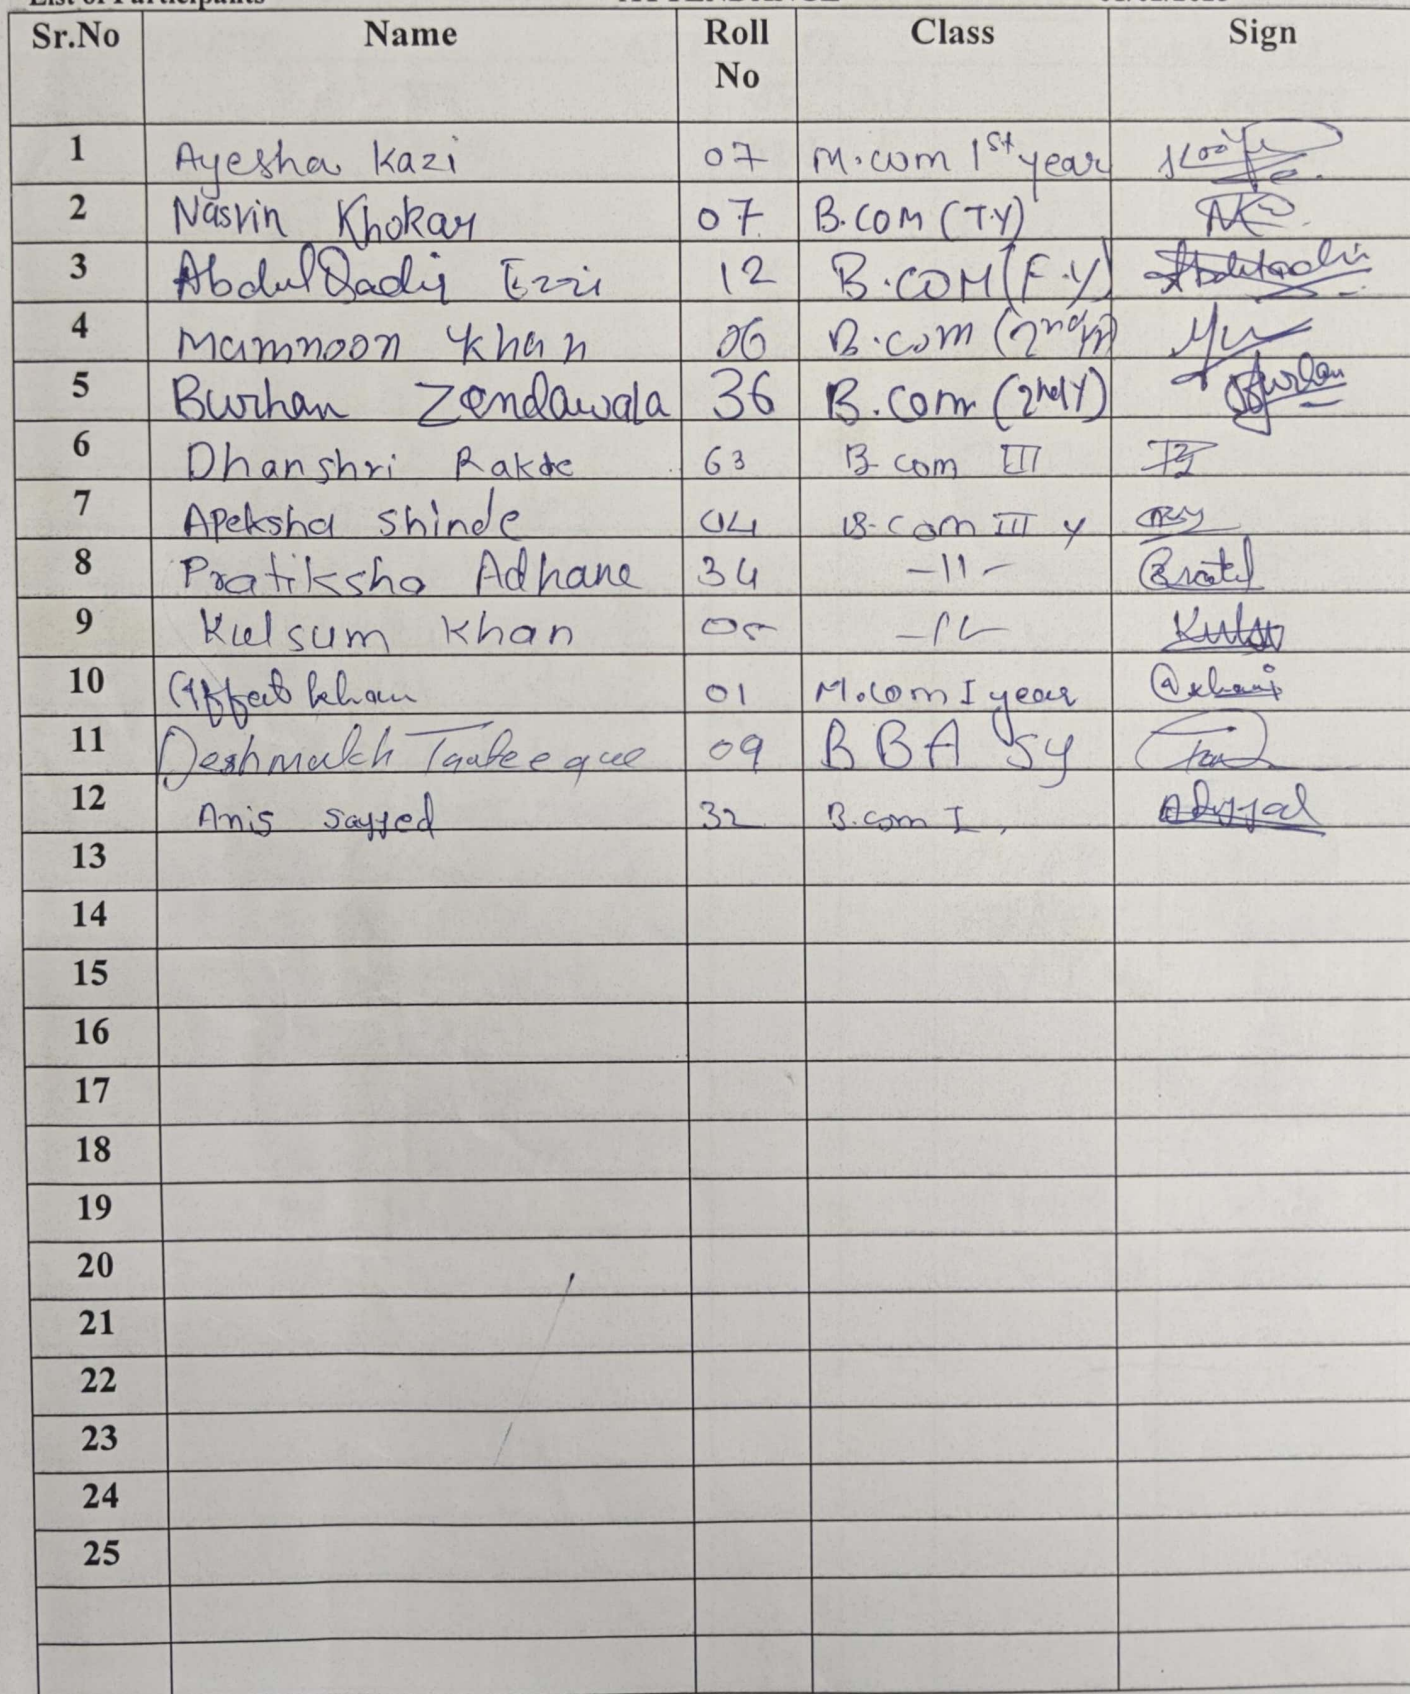 Sr.No Name Roll No Class Sign
1 Ayesha Kazi 07 M.com 1st year
2 Nasrin Khokar 07 B.COM (T.Y)
3 AbdulQadir Ezzi 12 B.COM (F.Y)
4 Mamnoon Khan 06 B.com
5 Burhan Zendawala 36 B.com (2ndY) Burhan
6 Dhanshri Rakde 63 B com III
7 Apeksha Shinde 04 B.com III y
8 Pratiksha Adhane 34 -11-
9 Kulsum Khan 05
10 khan 01 M.com I year
11 Deshmukh 09 BBA Sy
12 Anis Sayyed 32 B.com I.
13
14
15
16
17
18
19
20
21
22
23
24
25